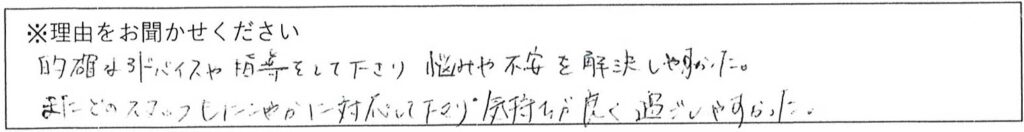 ※理由をお聞かせください
的確なアドバイスや指導をして下さり 悩みや不安を解決しやすかった。
またどのスタッフもにこやかに対応して下さり気持ちが良く過ごしやすかった。